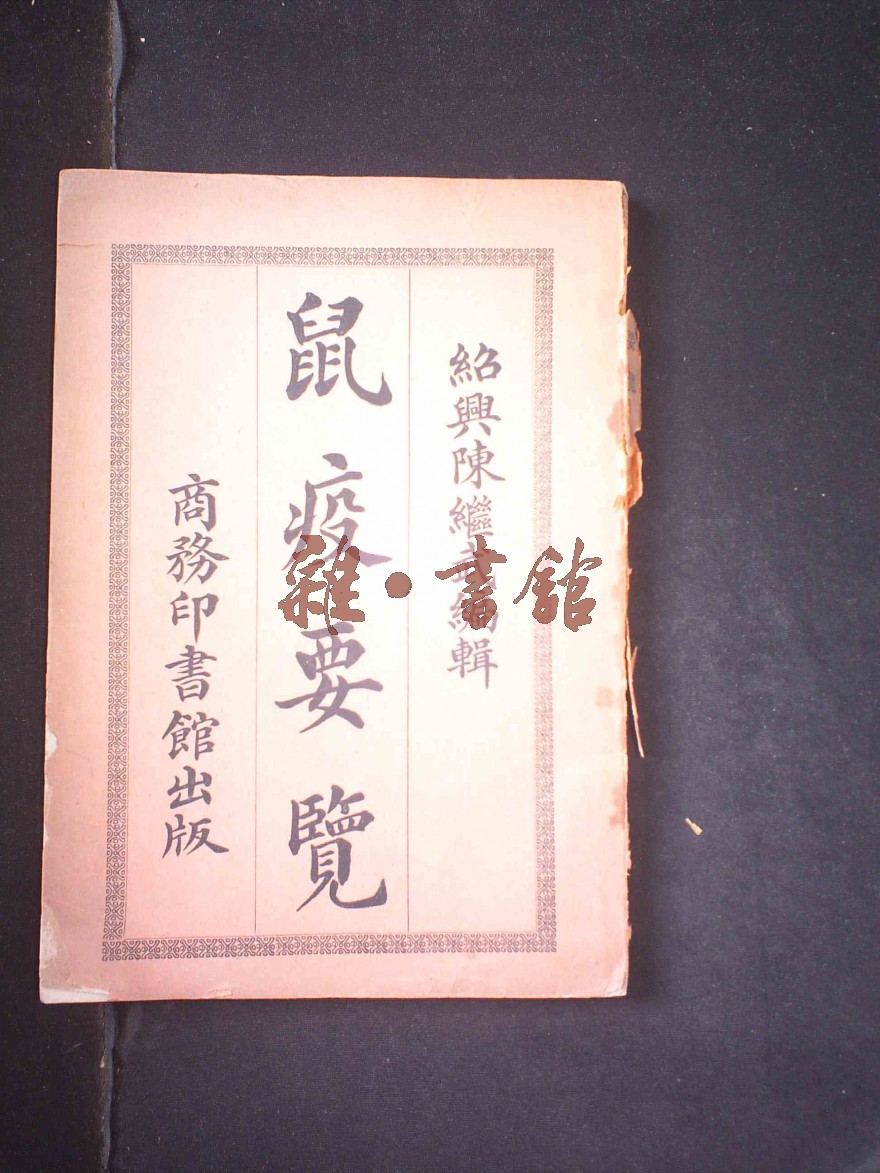 紹興陳繼武編輯
鼠疫要覽
商務印書館出版
雜·書館